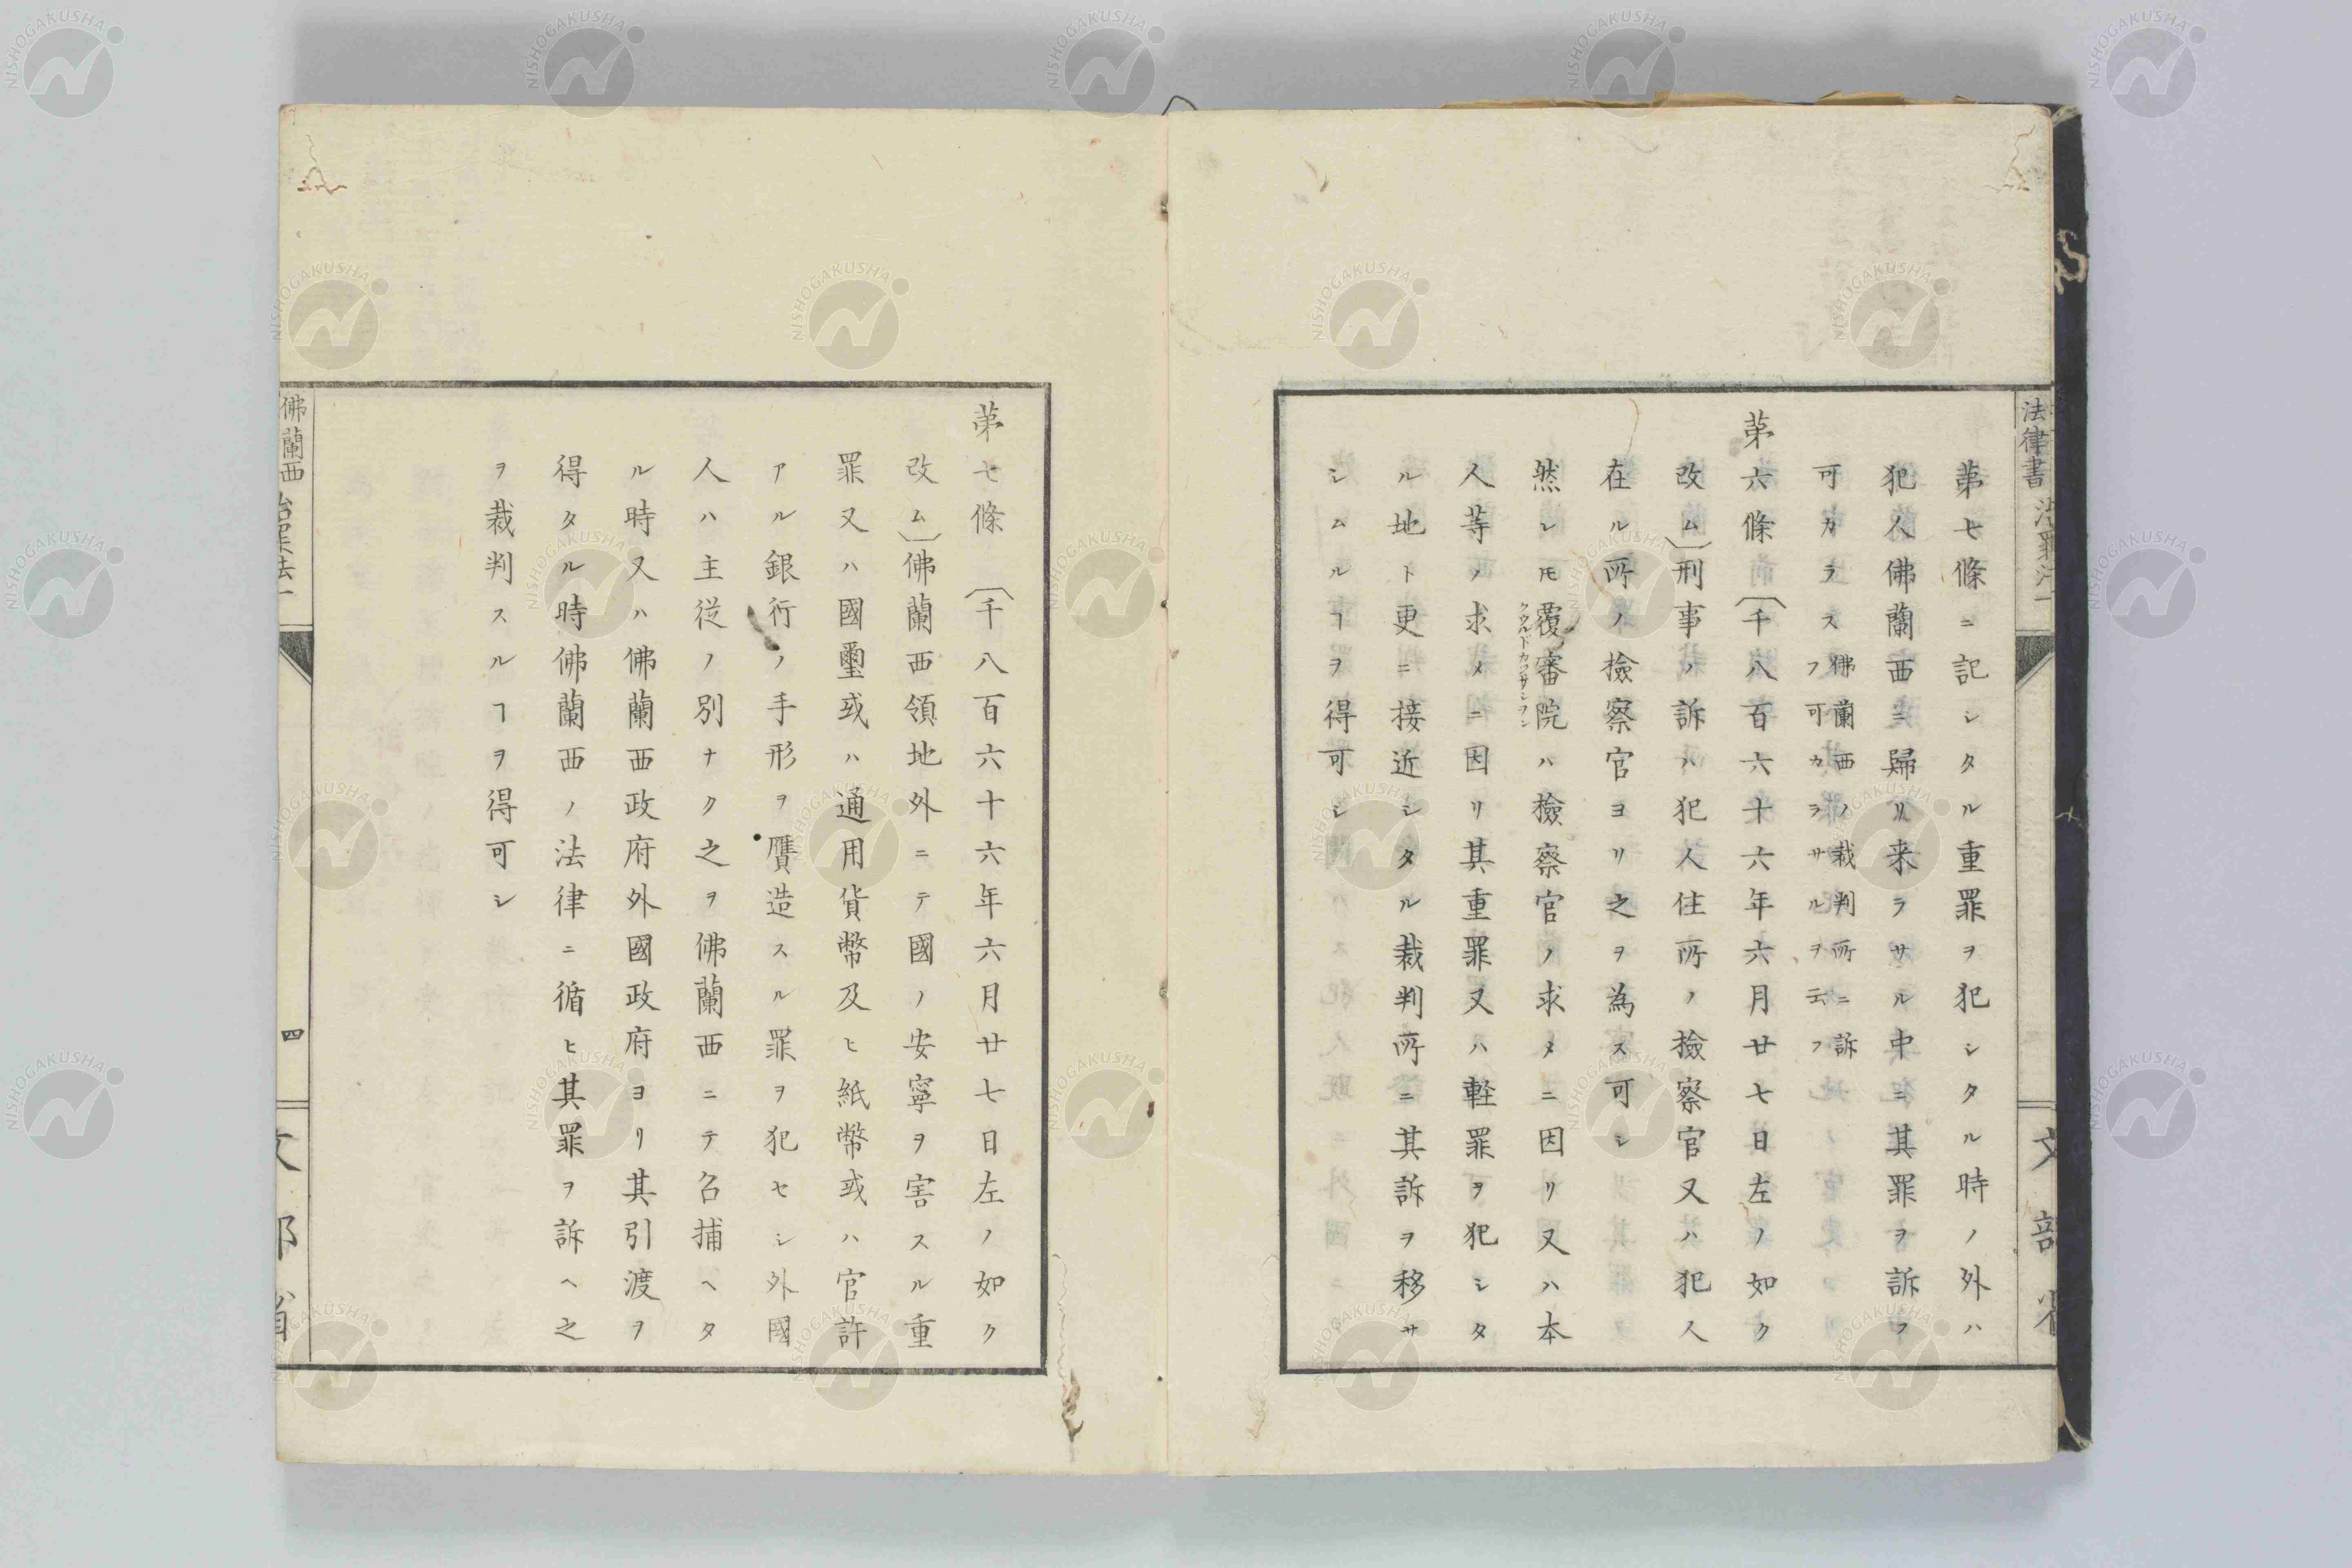 法律書
第七條ニ記シタル重罪ヲ犯シタル時ノ外ハ
犯人佛蘭西ニ歸リ来ラサル中ニ其罪ヲ訴フ
可カラス
佛蘭西ノ裁判所ニ訴
フ可カラサルヲ云フ
第六條〔千八百六十六年六月廿七日左ノ如ク
改ム〕刑事ノ訴ハ犯人住所ノ檢察官又ハ犯人
在ル所ノ檢察官ヨリ之ヲ為ス可シ
然レ𪜈覆審院ハ檢察官ノ求メニ因リ又ハ本
クウルドカッサシヲン
人等ノ求メニ因リ其重罪又ハ軽罪ヲ犯シタ
ル地ト更ニ接近シタル裁判所ニ其訴ヲ移サ
シムルヿヲ得可シ
文部省
第七條〔千八百六十六年六月廿七日左ノ如ク
改ム〕佛蘭西領地外ニテ國ノ安寧ヲ害スル重
罪又ハ國璽或ハ通用貨幣及ヒ紙幣或ハ官許
アル銀行ノ手形ヲ贋造スル罪ヲ犯セシ外國
人ハ主従ノ別ナク之ヲ佛蘭西ニテ召捕ヘタ
ル時又ハ佛蘭西政府外國政府ヨリ其引渡ヲ
得タル時佛蘭西ノ法律ニ循ヒ其罪ヲ訴ヘ之
ヲ裁判スルヿヲ得可シ
佛蘭西 治罪法一
四
NISHOGAKUSHA